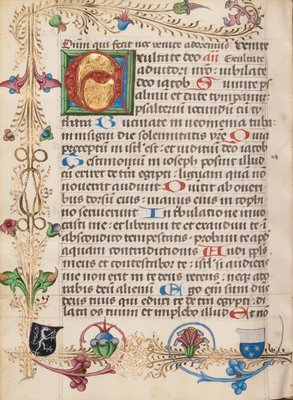 Dnm qui fecit nos venite adoremus venite
Exultate deo añ Exultate
adiutori nr̄o: iubilate
deo iacob Sumite ps
almū et date tympanū:
psalteriū iocundū cū cy
thara Bucinate in neomenia tuba:
in insigni die solemnitatis vr̄e Quia
preceptū in isrl̄ est: et iudiciū deo iacob
Testimoniū in ioseph posuit illud
cū exiret de terrā egypti: linguam quā nō
noverat audivit Divertit ab oneri
bus dorsū eius: manus eius in cophi
no servierunt In tribulatione invo
casti me: et liberavi te et exaudivi te i
abscondito tempestatis: probavi te apd̄
aquam contradictionis Audi pp̄ls
meus et contestabor te: isrl̄ si audieris
me non erit in te deus recens: neqz ado
rabis deū alienū Ego em̄ sum dn̄s
deus tuus qui eduxi te de trā egypti: di
lata os tuum et implebo illud Et nō